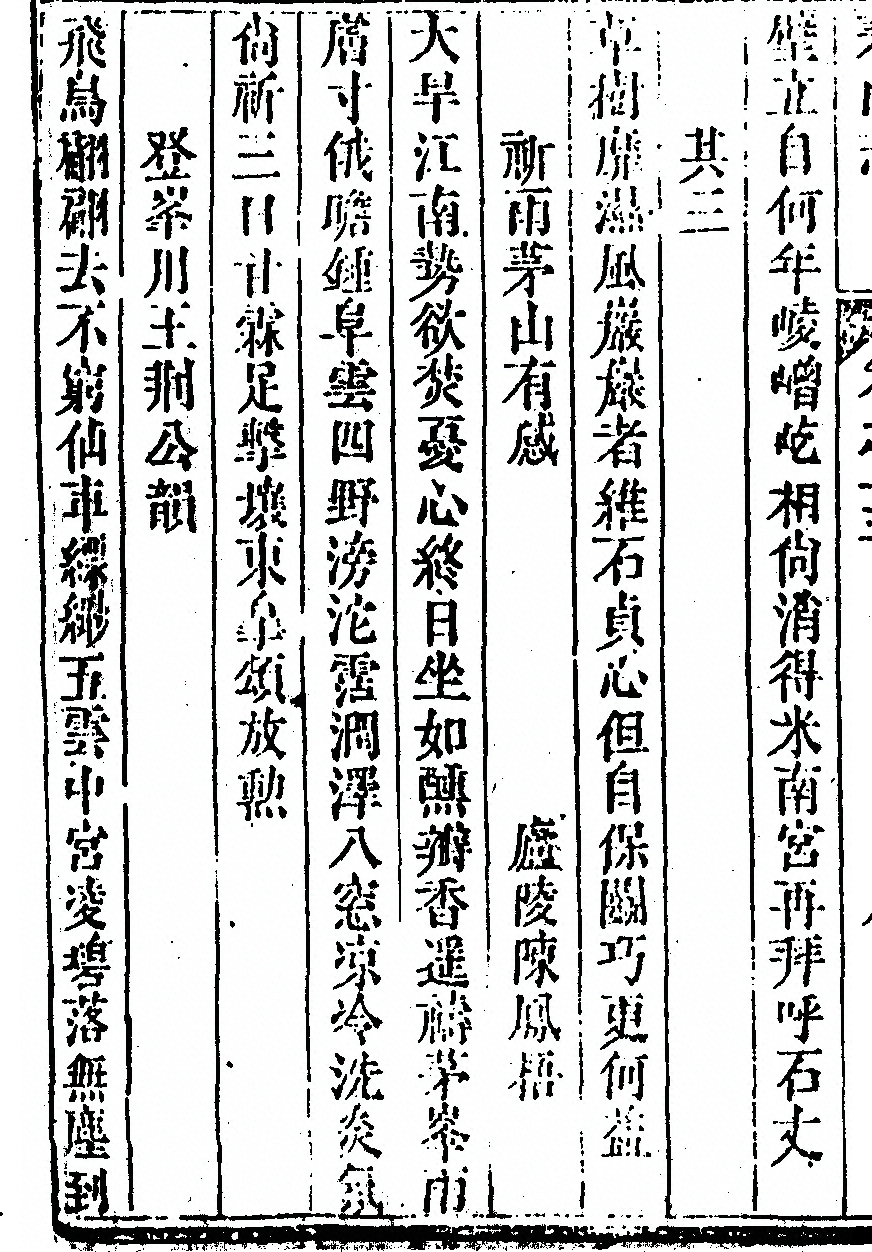 壁立自何年崚嶒屹相尙消得米南宮再拜呼石丈
其三
草樹靡濕風巖巖者維石貞心但自保鬬巧更何益
祈雨茅山有感 廬陵陳鳳梧
大旱江南勢欲焚憂心終日坐如醺瓣香遥禱茅峯雨
膚寸俄瞻鍾阜雲四野滂沱霑潤澤八窓凉冷洗炎氛
尙祈三日甘霖足擊壤東皐頌放勲
登峯用王荆公韻
飛鳥翩翩去不窮仙車縹緲五雲中宮凌碧落無塵到